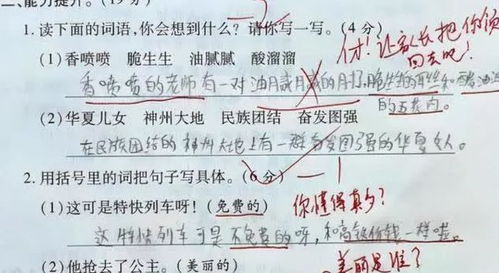 二、能力提升。(19分)
1. 读下面的词语,你会想到什么?请你写一写。(4分)
(1)香喷喷 脆生生 油腻腻 酸溜溜
香喷喷的老师有一对油腻腻的
和酸溜溜的五花肉。
(2)华夏儿女 神州大地 民族团结 奋发图强
在民族团结的神州大地上有一群奋发图强的华夏女人。
2. 用括号里的词把句子写具体。(6分)
(1)这可是特快列车呀!(免费的)
你懂得真多?
这特快列车可是不免费的呀,和高铁价钱一样啦。
(2)他抢去了公主。(美丽的)
美丽是谁?